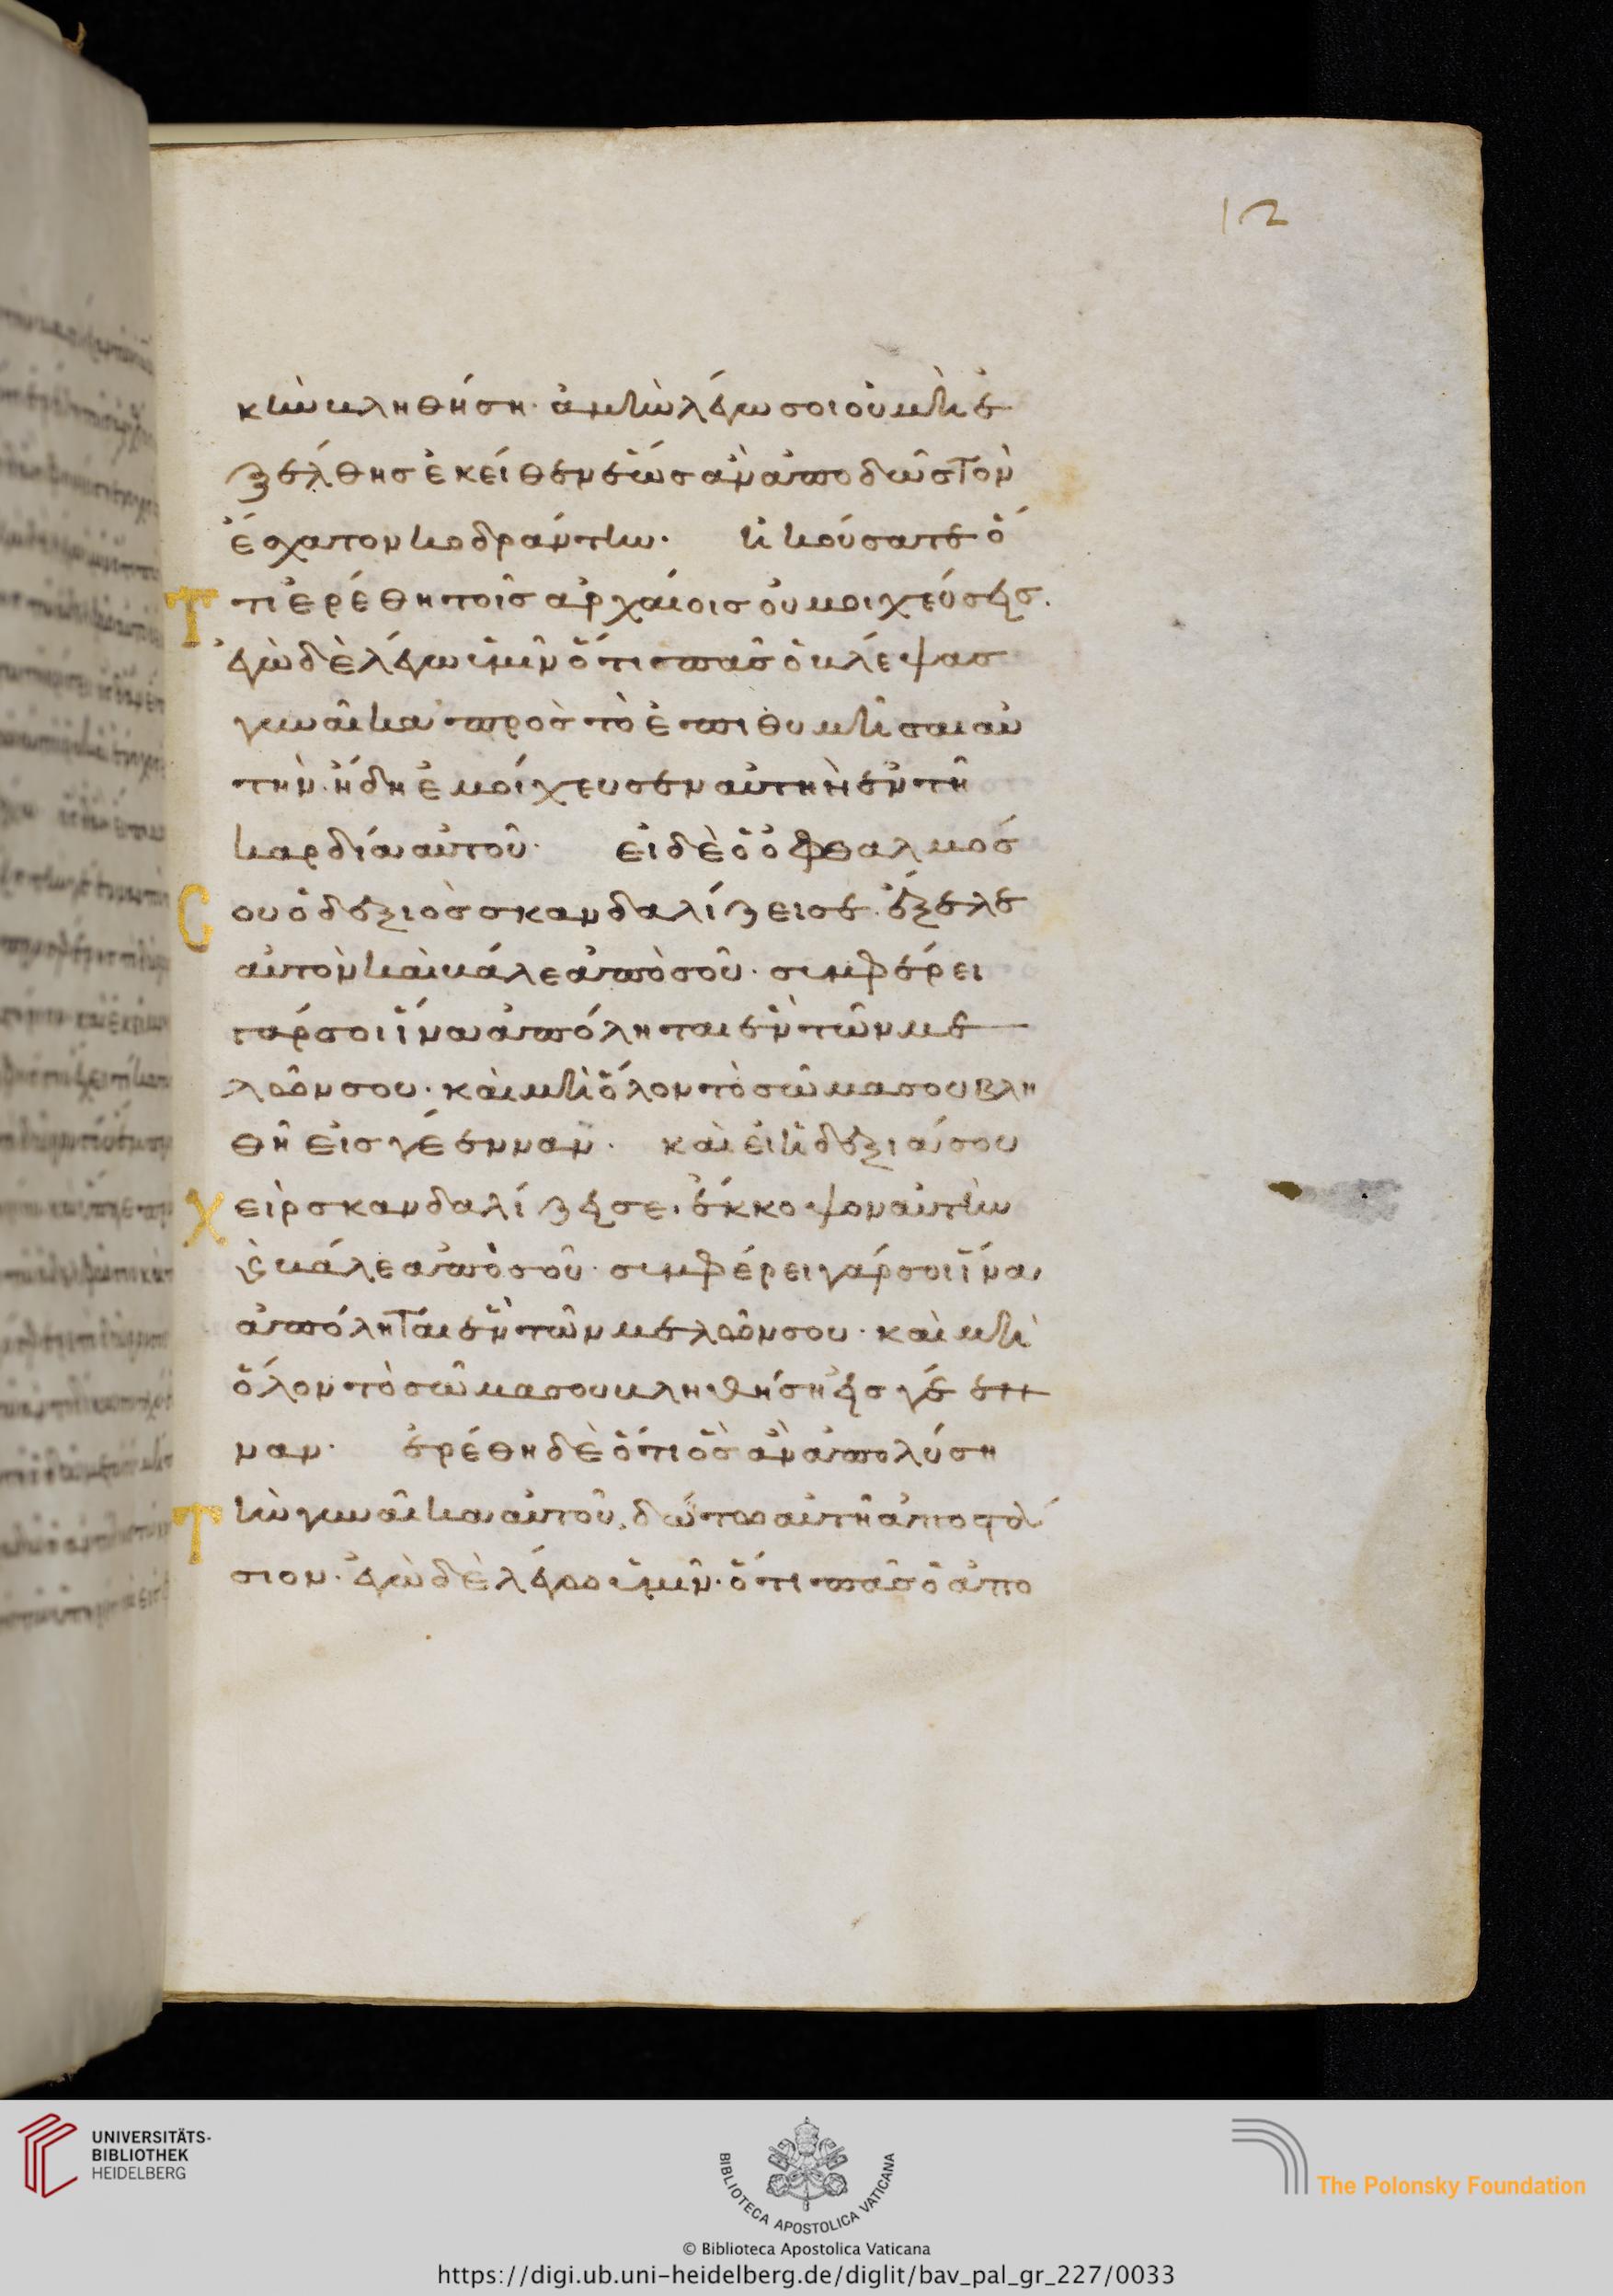 κὴν βληθήση· ἀμὴν λέγω σοι οὐ μὴ ἐ
ξέλθης ἐκείθεν ἕως ἂν ἀποδῶς τὸν
ἔσχατον κοδράντην· ἠκούσατε ὅ
Ττι ἐρέθη τοῖς ἀρχαίοις οὐ μοιχεύσεις.
ἐγὼ δὲ λέγω ὑμῖν ὅτι πᾶς ὁ βλέψας
γυναῖκα πρὸς τὸ ἐπιθυμῆσαι αὐ
τὴν· ἤδη ἐμοίχευσεν αὐτὴν ἐν τῆ
καρδία αὐτοῦ· εἰ δὲ ὁ ὀφθαλμός
Cου ὁ δεξιὸς σκανδαλίζει σε· ἔξελε
αὐτὸν καὶ βάλε ἀπὸ σοῦ· συμφέρει
γάρ σοι ἵνα ἀπόληται ἓν τῶν με
λῶν σου· καὶ μὴ ὅλον τὸ σῶμα σου βλη
θῆ εἰς γέενναν· καὶ εἰ ἡ δεξιά σου
Χεὶρ σκανδαλίζει σε· ἔκκοψον αὐτὴν
ϗ βάλε ἀπὸ σοῦ· συμφέρει γάρ σοι ἵνα
ἀπόληται ἓν τῶν μελῶν σου· καὶ μὴ
ὅλον τὸ σῶμα σου βληθήση εἰς γέεν
ναν· ἐρέθη δὲ ὅτι ὃς ἂν ἀπολύση
Τὴν γυναῖκα αὐτοῦ, δώτω αὐτῆ ἀποστά
σιον· ἐγὼ δὲ λέγω ὑμῖν· ὅτι πᾶς ὁ ἀπο
12
UNIVERSITÄTS-
BIBLIOTHEK
HEIDELBERG
BIBLIOTECA APOSTOLICA VATICANA
The Polonsky Foundation
© Biblioteca Apostolica Vaticana
https://digi.ub.uni-heidelberg.de/diglit/bav_pal_gr_227/0033